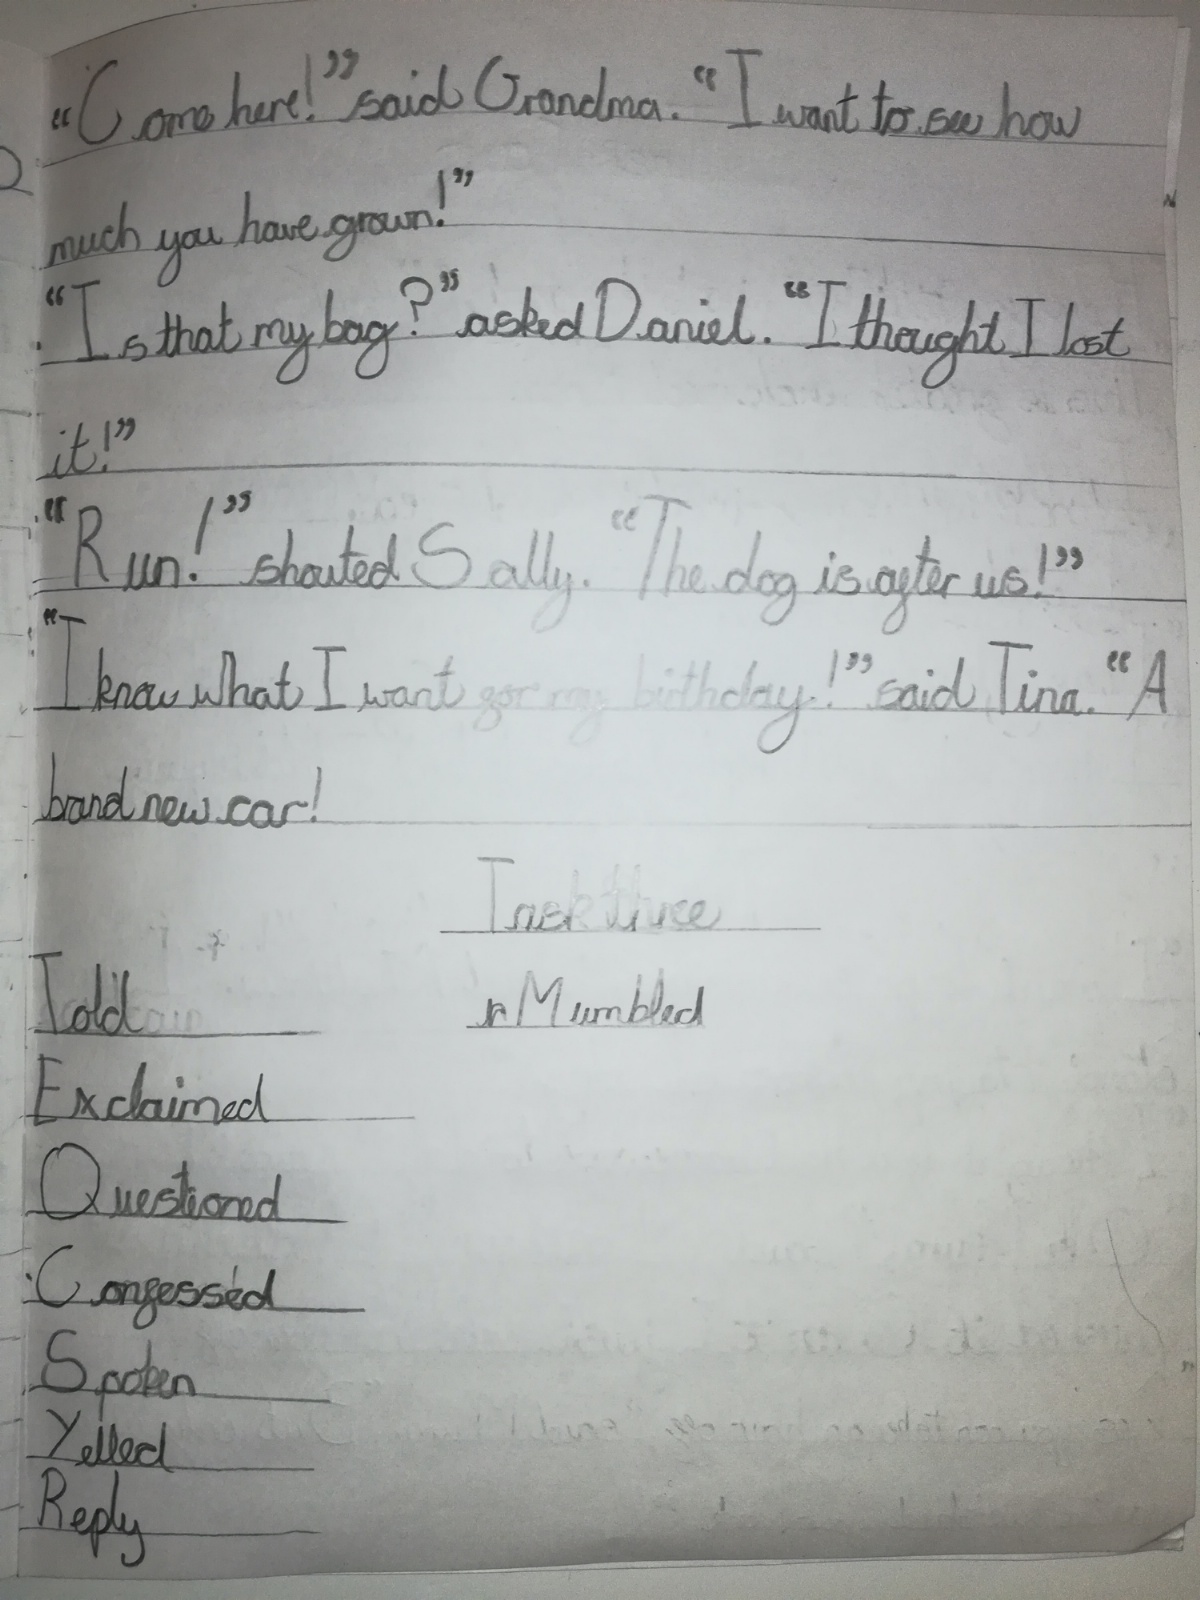 “Come here!” said Grandma. “I want to see how
much you have grown!”
“Is that my bag?” asked Daniel. “I thought I lost
it!”
“Run!” shouted Sally. “The dog is after us!”
“I know what I want for my birthday!” said Tina. “A
brand new car!
Task three
Told
Mumbled
Exclaimed
Questioned
Confessed
Spoken
Yelled
Reply